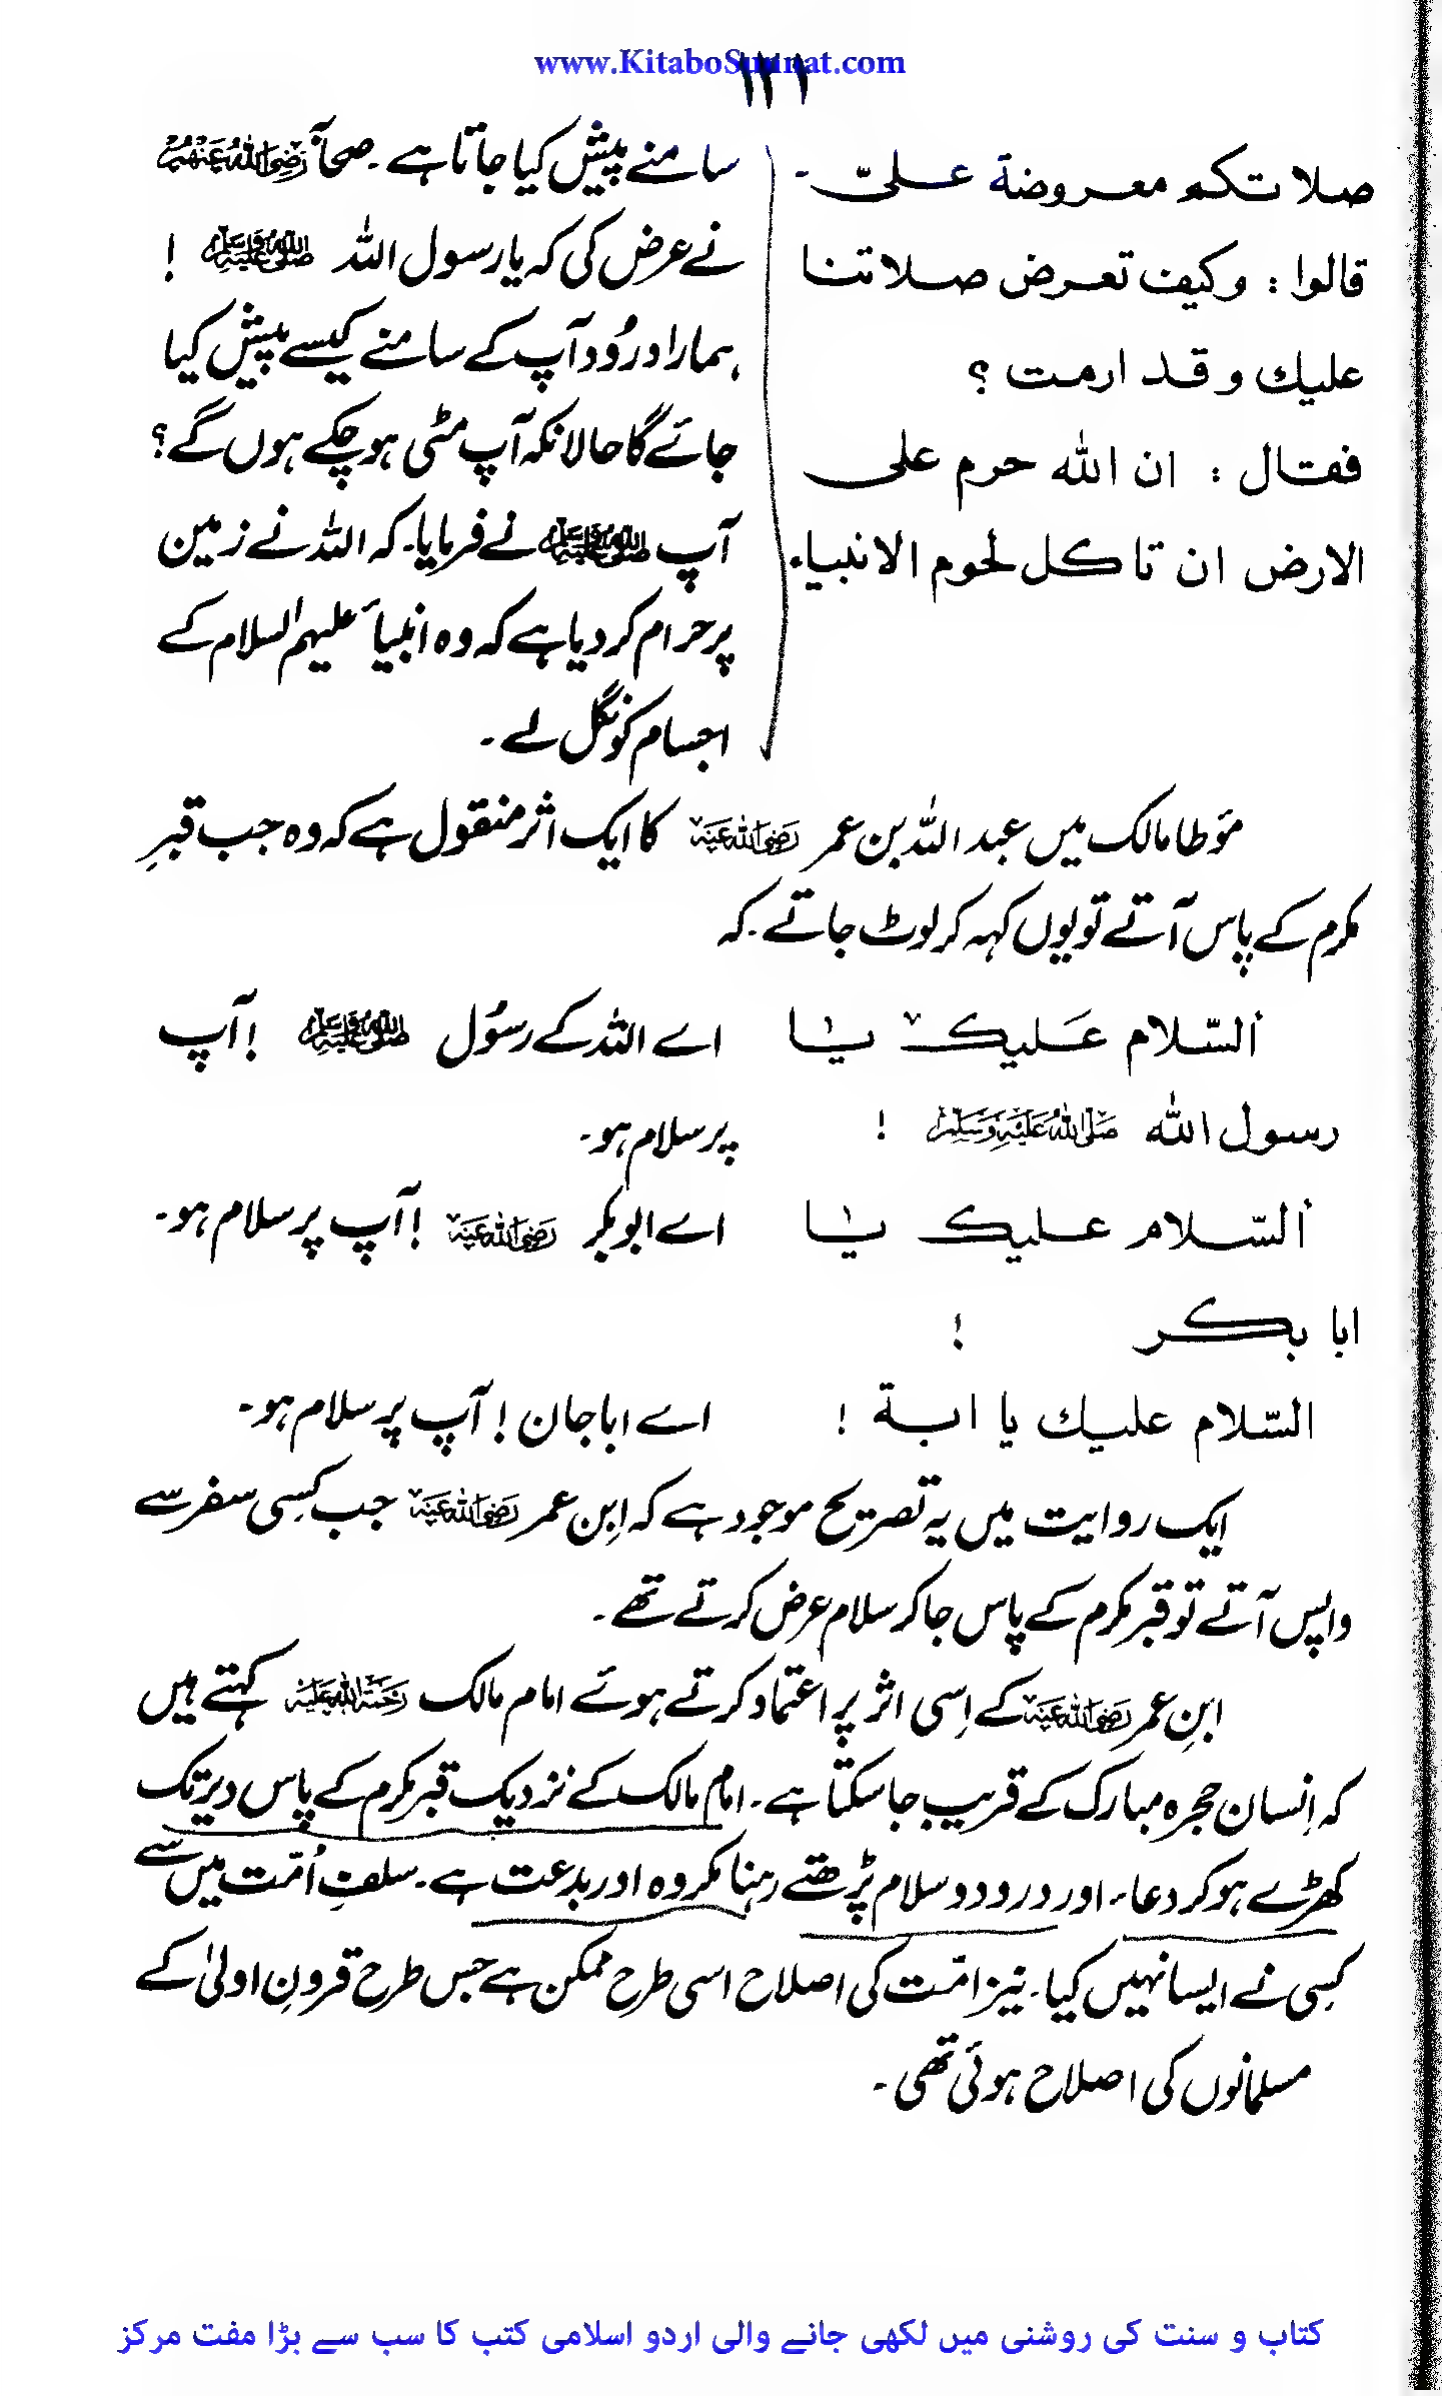 www.KitaboSunnat.com
۱۲۱
صلاتكم معروضة علىّ ۔
قالوا : وكيف تعرض صلاتنا
عليك وقد ارمت ؟
فقال : ان الله حرم على
الارض ان تاكل لحوم الانبياء
سامنے پیش کیا جاتا ہے ۔ صحابہؓ رَضِیَ اللہُ عَنْہُمْ
نے عرض کی کہ یا رسول اللہ ﷺ !
ہمارا درُود آپ کے سامنے کیسے پیش کیا
جائے گا حالانکہ آپ مٹی ہو چکے ہوں گے ؟
آپ ﷺ نے فرمایا۔ کہ اللہ نے زمین
پر حرام کر دیا ہے کہ وہ انبیاء علیہم السلام کے
اجسام کو نگل لے ۔
مؤطا مالک میں عبد اللہ بن عمر رَضِیَ اللہُ عَنْہُ کا ایک اثر منقول ہے کہ وہ جب قبرِ
مکرم کے پاس آتے تو یوں کہہ کر لوٹ جاتے ۔ کہ
اَلسّلام عَلیکَ یٰا
رسول الله صَلَّى اللهُ عَلَيْهِ وَسَلَّمَ !
اے اللہ کے رسُول ﷺ ! آپ
پر سلام ہو۔
اَلسّلام عليك يٰا
ابا بكر !
اے ابو بکر رَضِیَ اللہُ عَنْہُ ! آپ پر سلام ہو۔
السّلام عليك يا ابة !
اے ابا جان ! آپ پر سلام ہو۔
ایک روایت میں یہ تصریح موجود ہے کہ اِبن عمر رَضِیَ اللہُ عَنْہُ جب کسِی سفر سے
واپس آتے تو قبر مکرم کے پاس جا کر سلام عرض کرتے تھے ۔
ابنِ عمر رَضِیَ اللہُ عَنْہُ کے اِسی اثر پر اعتماد کرتے ہوئے امام مالک رَحْمَۃُ اللہِ عَلَیْہ کہتے ہیں
کہ اِنسان حجرہ مبارک کے قریب جا سکتا ہے ۔ امام مالک کے نزدیک قبر مکرم کے پاس دیر تک
کھڑے ہو کر دعاء اور درود و سلام پڑھتے رہنا مکروہ اور بدعت ہے ۔ سلفِ اُمّت میں سے
کسِی نے ایسا نہیں کیا۔ نیز امّت کی اصلاح اسی طرح ممکن ہے جس طرح قرونِ اولیٰ کے
مسلمانوں کی اصلاح ہوئی تھی ۔
کتاب و سنت کی روشنی میں لکھی جانے والی اردو اسلامی کتب کا سب سے بڑا مفت مرکز